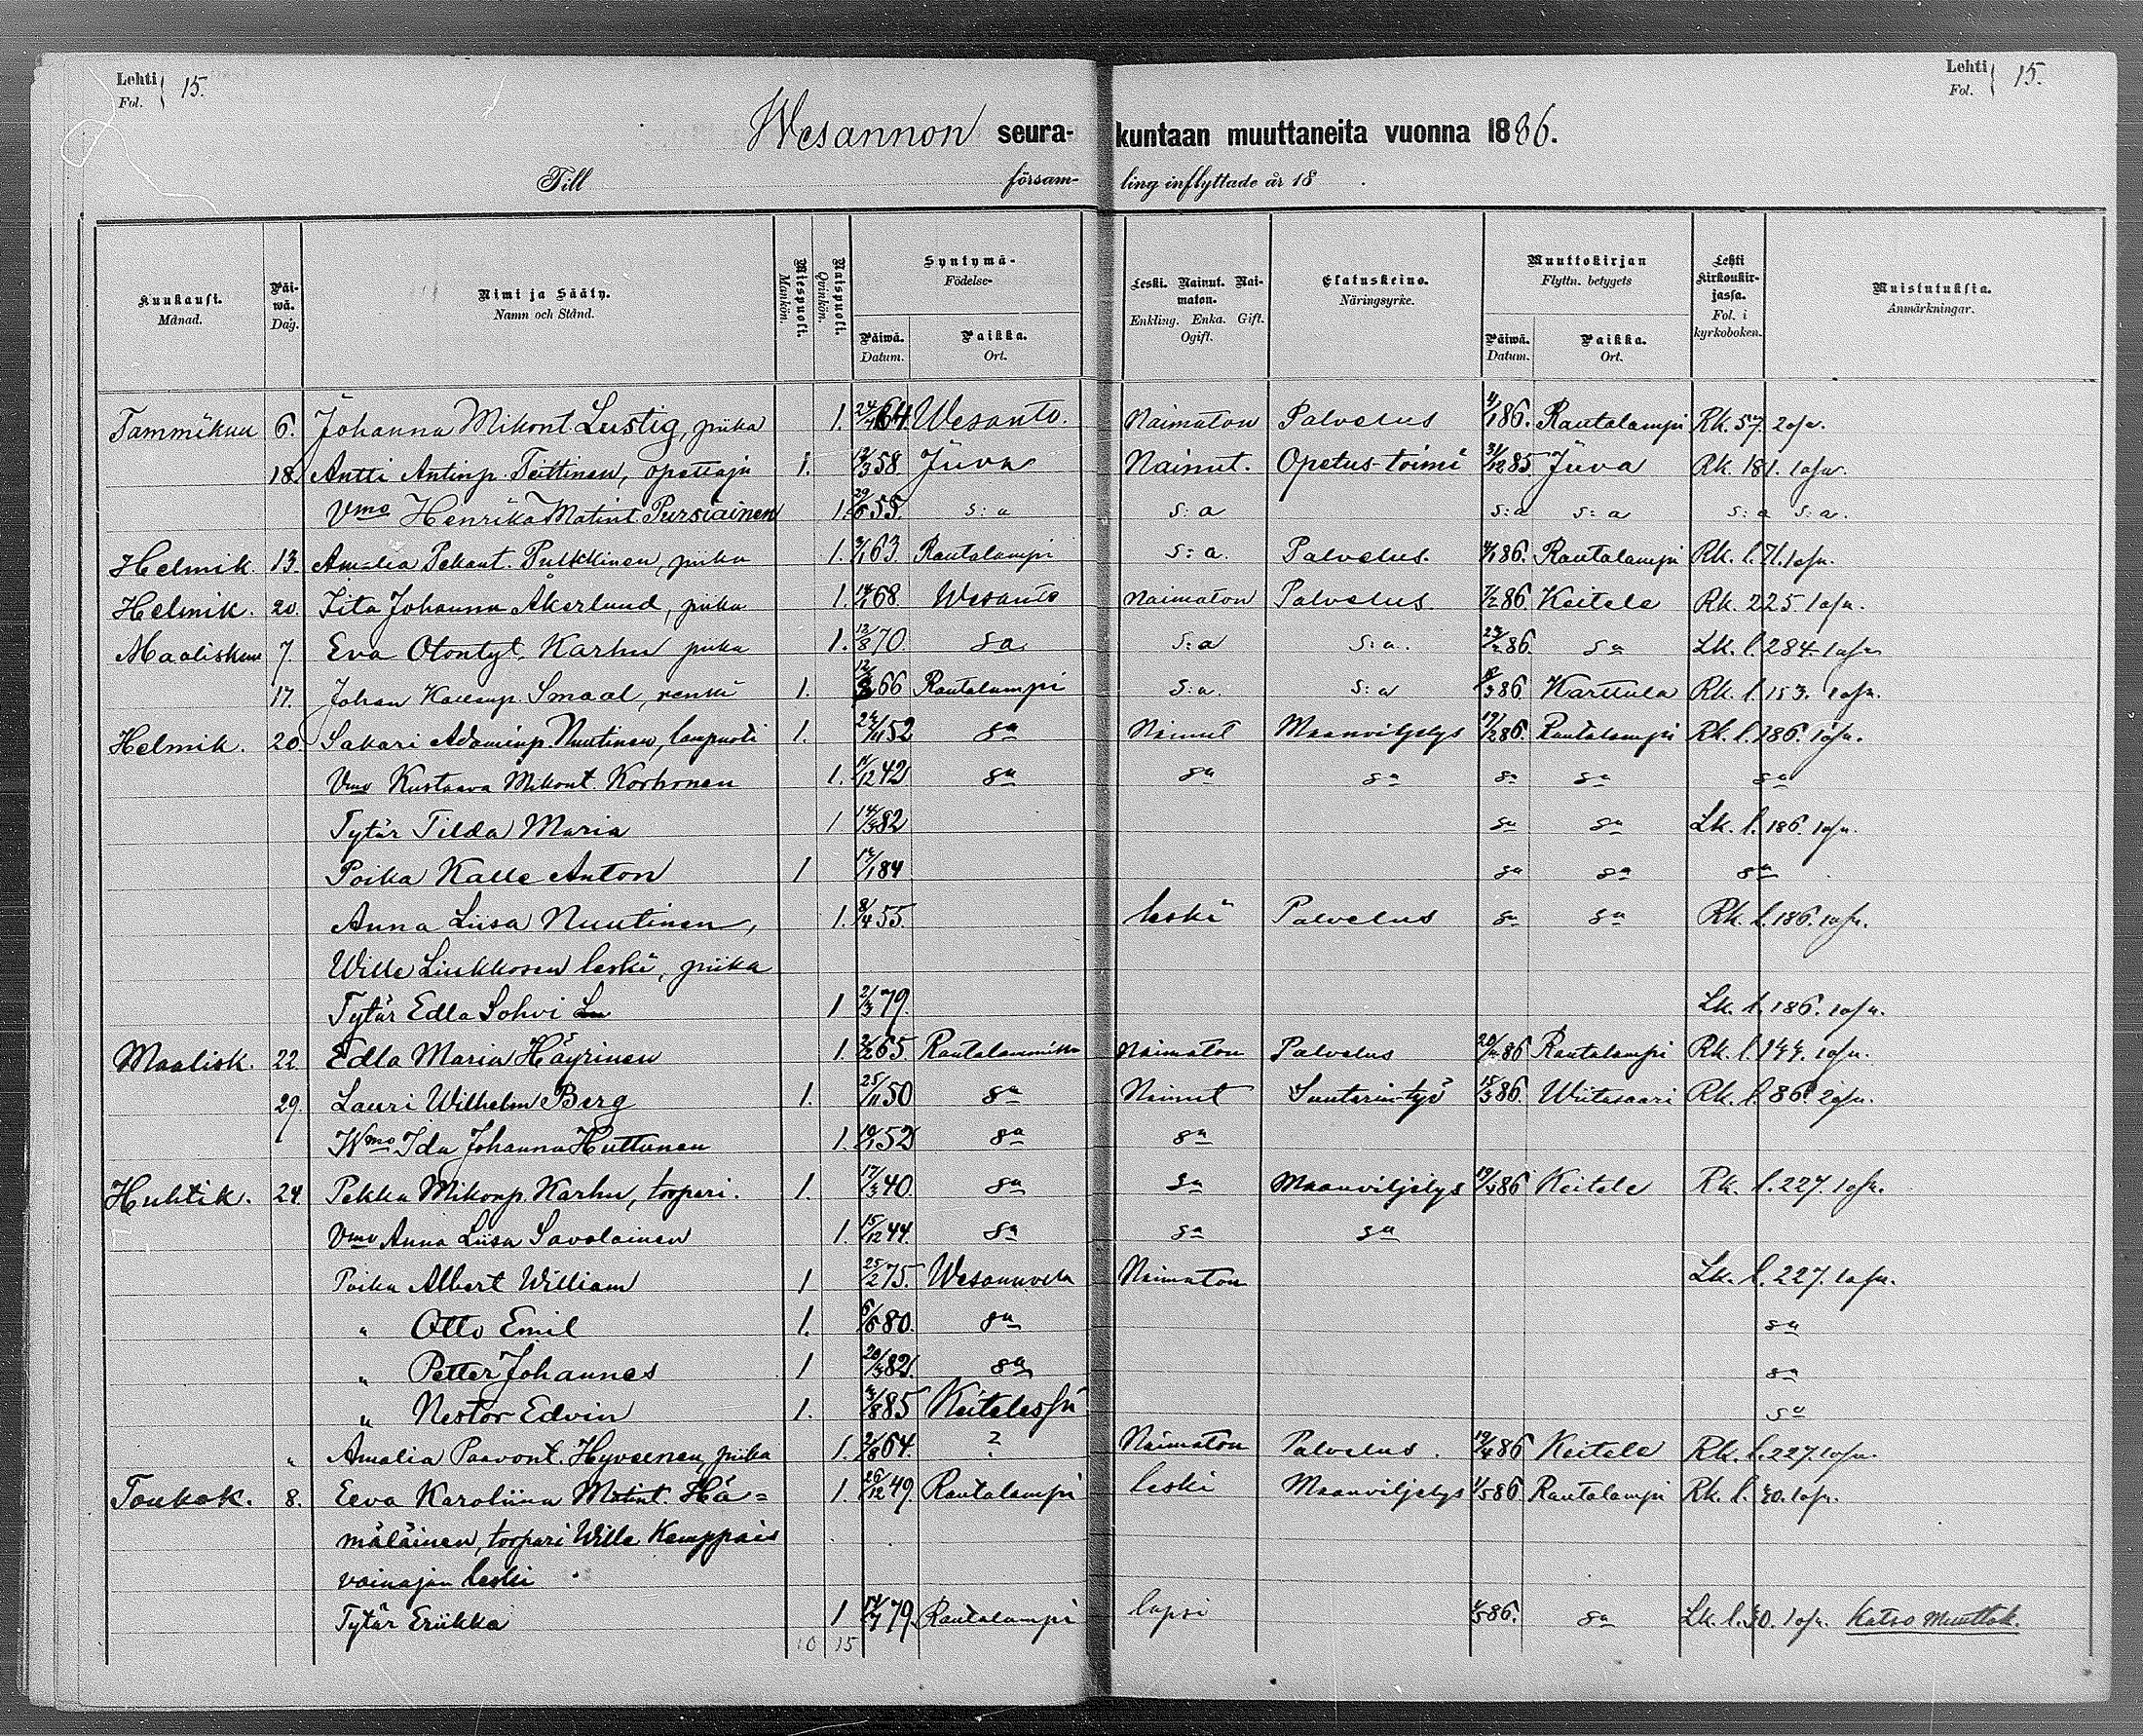 Lehti Fol. 15. Lehti Fol. 15.
Wesannon seura- kuntaan muuttaneita vuonna 1886.
Till försam- ling inflyttade år 18 .
Kuukausi. Månad. Päi-wä. Dag. Nimi ja Sääty. Namn och Stånd. Miespuoli. Mankön. Naispuoli. Qvinkön. Syntymä- Födelse- Päiwä. Datum. Paikka. Ort. Leski. Nainut. Nai-maton. Enkling. Enka. Gift. Ogift. Elatuskeino. Näringsyrke. Muuttokirjan Flyttn. betygets Päiwä. Datum. Paikka. Ort. Lehti kirkonkir-jassa. Fol. i kyrkoboken. Muistutuksia. Anmärkningar.
Tammikuu 6. Johanna Mikont Lustig, piika 1. 64 Wesanto. Naimaton Palvelus 86. Rautalampi Rk. 57. 2osa.
18 Antti Antinp. Teittinen, opettaja 1. 58 Juva Nainut. Opetus-toimi 31/12 85 Juva Rk. 181. 1osa.
Vmo Henrika Matint. Pursiainen 1. 55. s:a s:a s:a s:a s:a s:a.
Helmik. 13. Amalia Pekant. Pulkkinen, piika 1. 63. Rautalampi s:a. Palvelus. 86. Rautalampi Rk. l. 71. 1osa.
Helmik. 20. Iita Johanna Åkerlund, piika 1. 68. Wesanto Naimaton Palvelus. 86. Keitele Rk. 225. 1osa.
Maaliskuu 7. Eva Otontyt. Karhu piika 1. 12/8 70. sa s:a s:a. 86. sa Lk. l. 284. 1osa
17. Johan Kallenp. Smaal, renki 1. 66 Rautalampi s:a. s:a 86 Karttula Rk. l. 153. 1osa.
Helmik. 20 Sakari Adaminp Nuutinen, lampuoti 1. 52 sa Nainut Maanviljelys 19/2 86. Rautalampi Rk. l. 186. 1osa.
Vmo Kustaava Mikont. Korhonen 1. 42 sa sa sa sa sa sa
Tytär Tilda Maria 1 82 sa sa Lk. l. 186. 1osa.
Poika Kalle Anton 1 84 sa sa sa
Anna Liisa Nuutinen, 1. 8/4 55. leski Palvelus sa sa Rk. l. 186. 1osa.
Wille Linkkosen leski, piika
Tytär Edla Sohvi 1 2/3 79. Lk. l. 186. 1osa.
Maalisk. 22. Edla Maria Häyrinen 1. 65 Rautalammilla Naimaton Palvelus 86 Rautalampi Rk. l. 144. 1osa.
29. Lauri Wilhelm Berg 1. 25/11 50 sa Nainut Suutarin-työ 15/3 86. Wiitasaari Rk. l. 86. 2osa.
Wmo Ida Johanna Huttunen 1. 52 sa sa
Huhtik. 24. Pekka Mikonp. Karhu, torpari. 1. 17/3 40. sa sa Maanviljelys 19/4 86 Keitele Rk. l. 227. 1osa.
Vmo Anna Liisa Savolainen 1. 15/12 44. sa sa sa
Poika Albert William 1 25/2 75. Wesannolla Naimaton Lk. l. 227. 1osa.
" Otto Emil 1. 80. sa sa
" Petter Johannes 1 20/3 82. sa sa
" Nestor Edvin 1. 3/8 85 Keitelessä sa
" Amalia Paavont. Hyvönen, piika 1. 2/8 64. ? Naimaton Palvelus. 19/4 86 Keitele Rk. l. 227. 1osa.
Toukok. 8. Eeva Karoliina Matint. Hä= 1. 26/12 49. Rautalampi leski Maanviljelys 1/5 86 Rautalampi Rk. l. 40. 1osa.
mäläinen, torpari Wille Kemppais
vainajan leski
Tytär Eriikka 1 79. Rautalampi lapsi 86. sa Lk. l. 40. 1osa. Katso Muuttok.
10 15